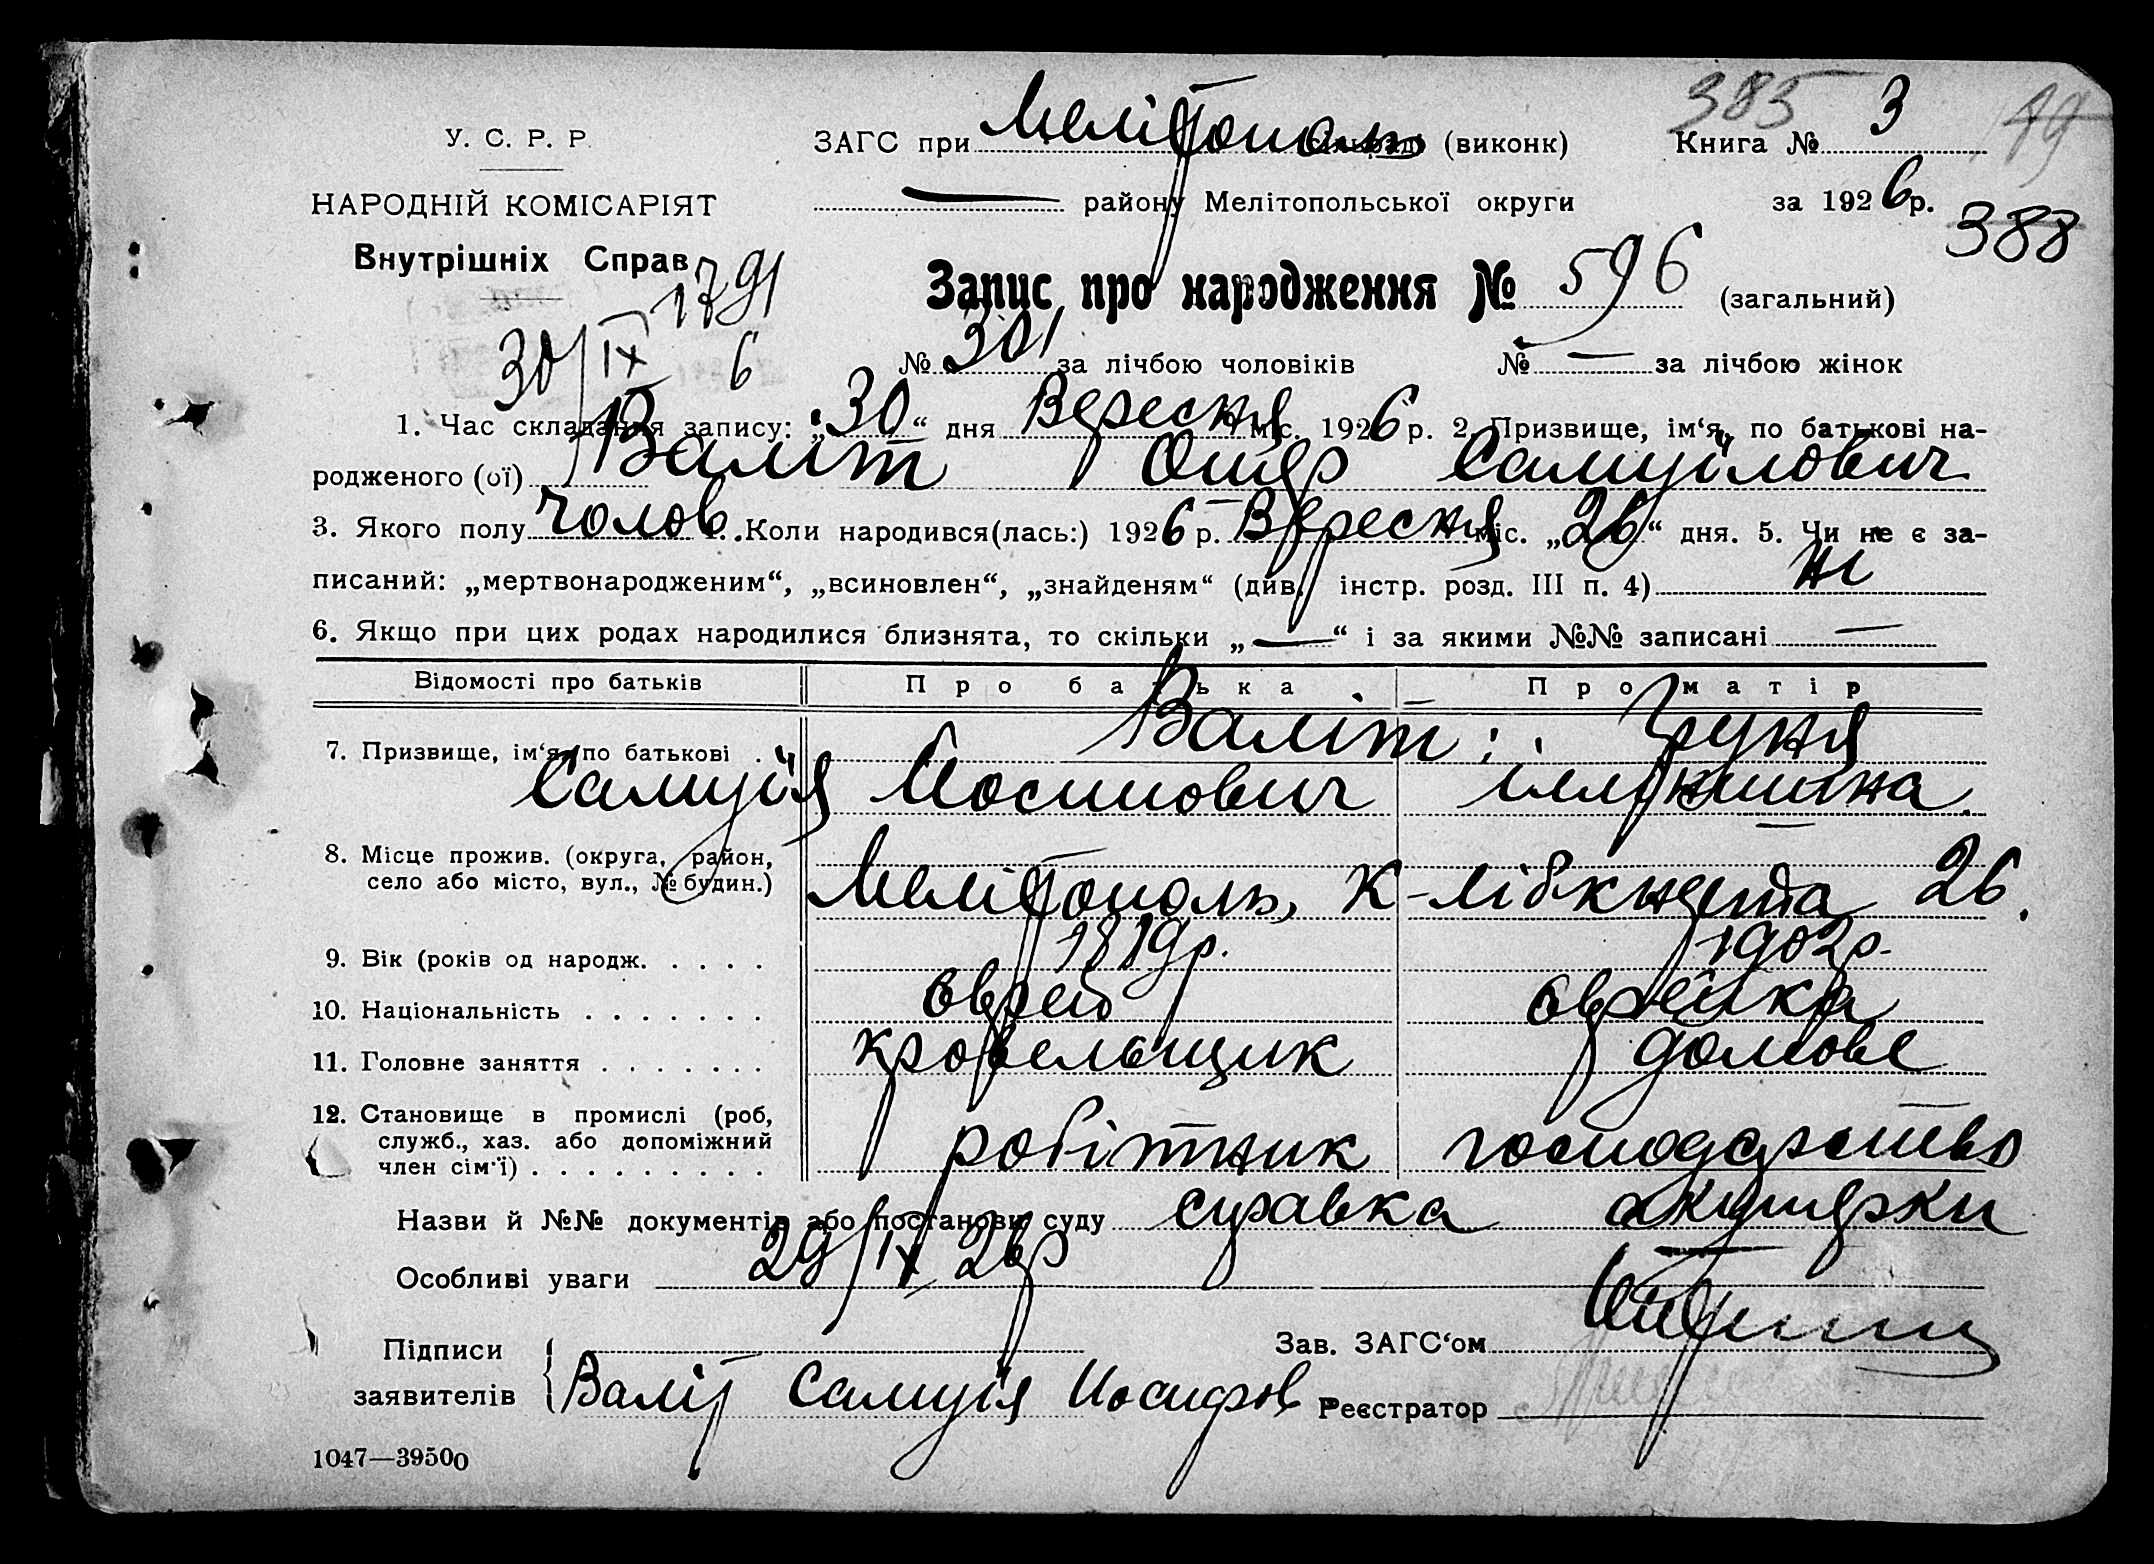 385
У. С. Р. Р.
ЗАГС при Мелітополь (виконк) Книга № 3
НАРОДНІЙ КОМІСАРІЯТ
району Мелітопольської округи за 1926 р.
388
Внутрішніх Справ
1791
Запис про народження № 596 (загальний)
30/IX 6
№ 301 за лічбою чоловіків № — за лічбою жінок
1. Час складання запису: „30“ дня Вересня міс. 1926 р. 2. Призвище, ім‘я, по батькові на-
родженого (ої) Валіт Ошер Самуїлович
3. Якого полу чолов. Коли народився(лась:) 1926 р. Вересня міс. „26“ дня. 5. Чи не є за-
писаний: „мертвонародженим“, „всиновлен“, „знайденям“ (див. інстр. розд. III п. 4) ні
6. Якщо при цих родах народилися близнята, то скільки „—“ і за якими №№ записані —
Відомості про батьків Про батька Про матір
7. Призвище, ім‘я, по батькові Валіт Груня
Самуїл Йосипович
8. Місце прожив. (округа, район,
село або місто, вул., № будин.) Мелітополь, К-лібкнехта 26.
9. Вік (років од народж. 1902р.
10. Національність еврей еврейка
11. Головне заняття кровельщик домове
12. Становище в промислі (роб,
служб., хаз. або допоміжний
член сім‘ї) робітник господарство
Назви й №№ документів або постанови суду справка акушерки
29/IX 26р
Особливі уваги
Підписи
заявителів
Зав. ЗАГС‘ом
Валіт Самуїл Иосифов Реєстратор
1047—39500